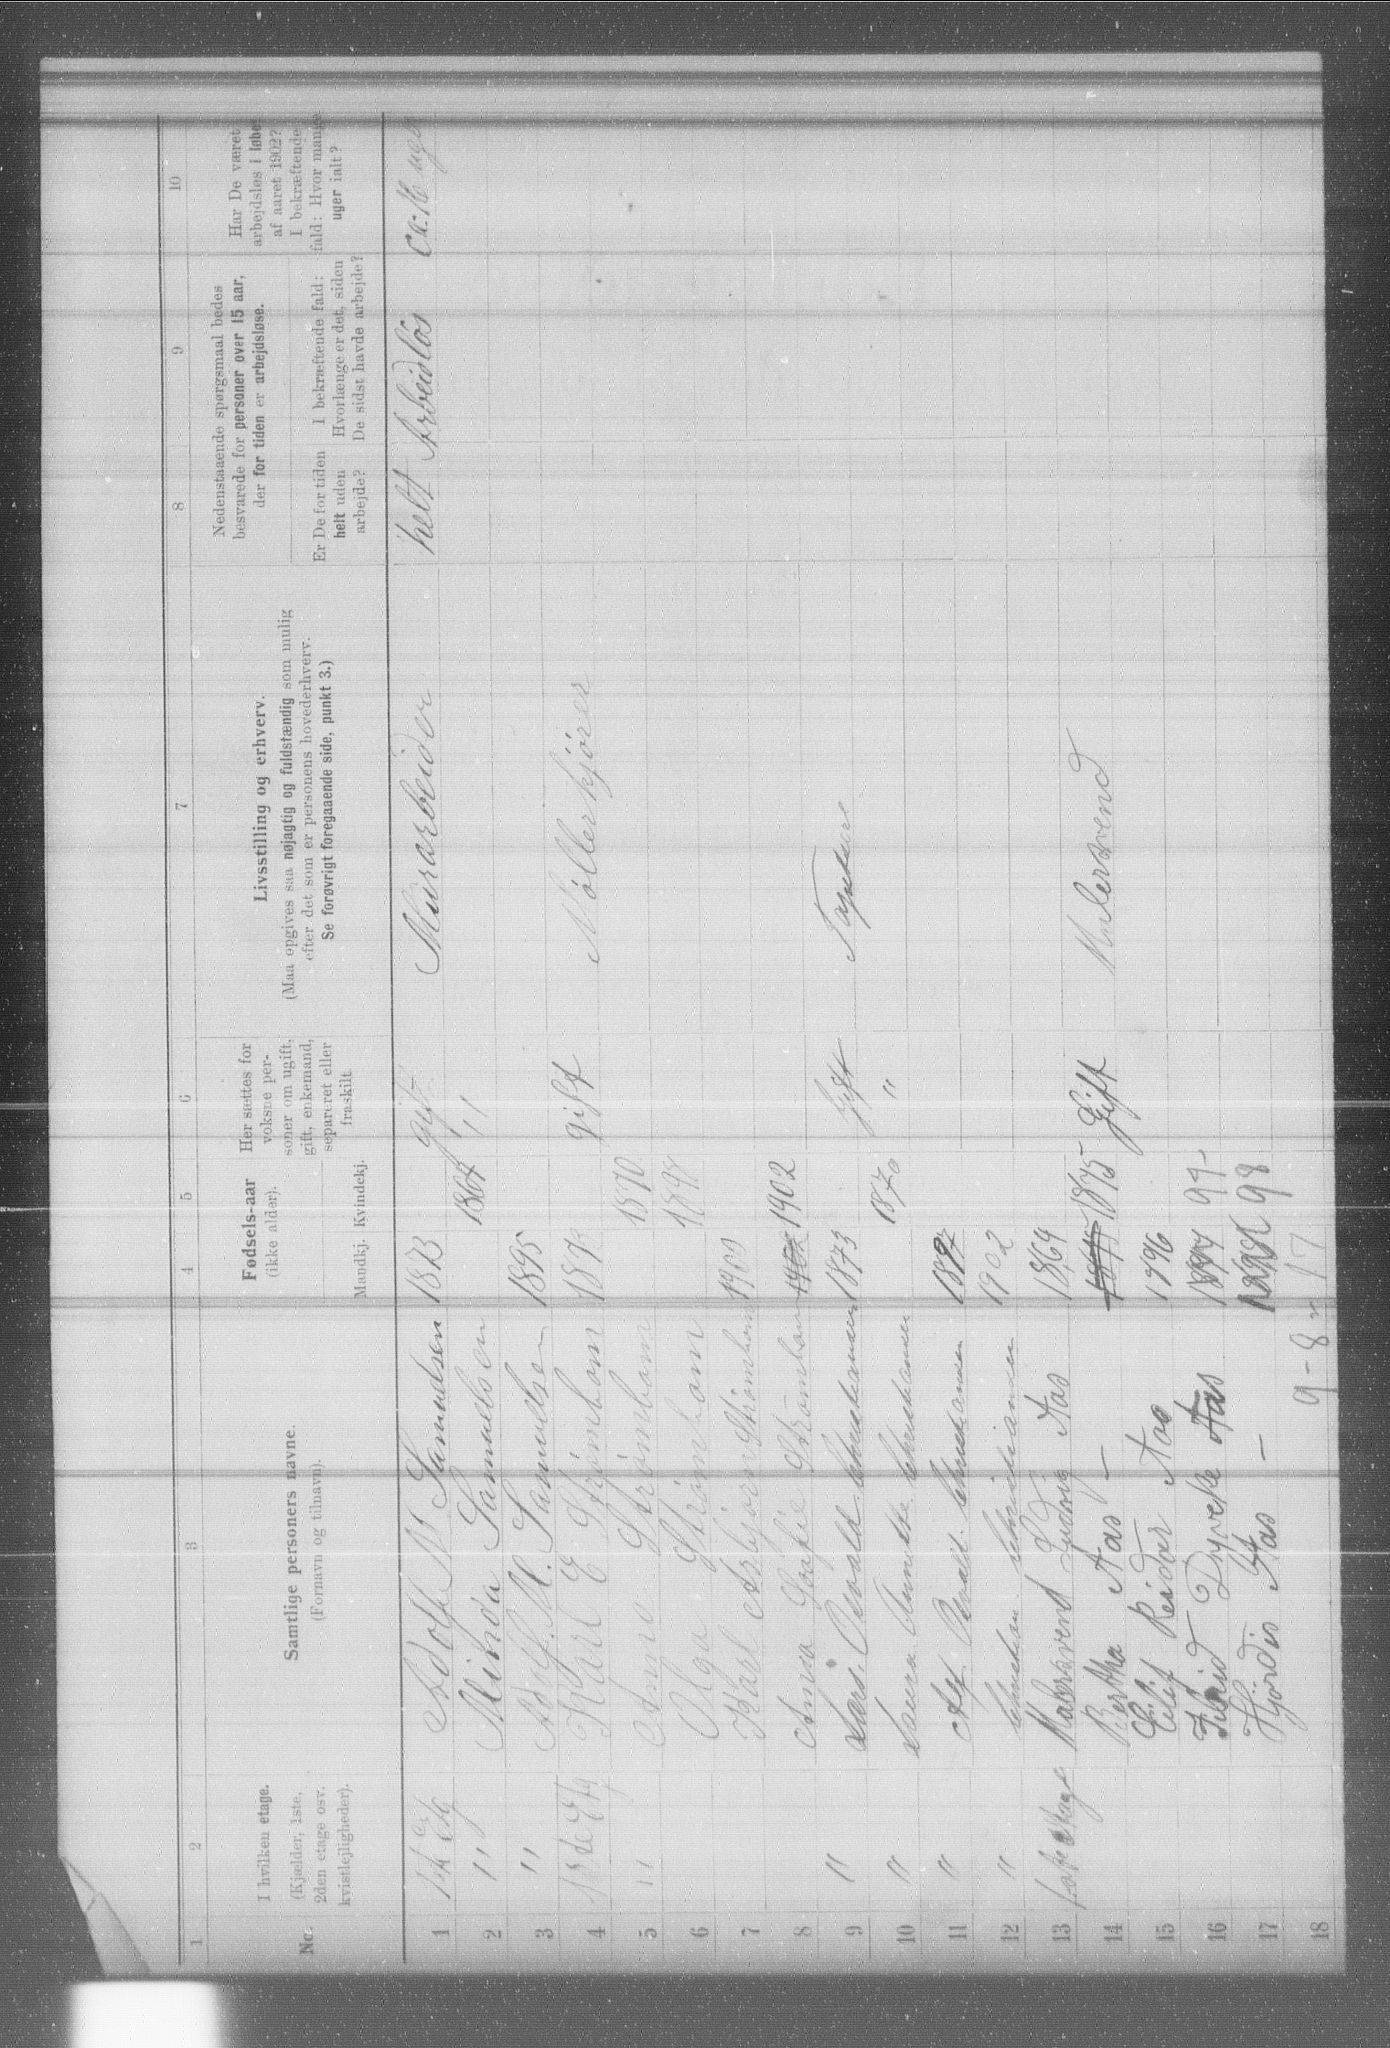 1 2 3 4 5 6 7 8 9 10
Nr.
I hvilken etage.
(Kjælder, 1ste,
2den etage osv.
kvistlejligheder).
Samtlige personers navne.
(Fornavn og tilnavn).
Fødsels-aar
(ikke alder).
Mandkj. Kvindekj.
Her sættes for
voksne per-
soner om ugift,
gift, enkemand,
separeret eller
fraskilt
Livsstilling og erhverv.
(Maa opgives saa nøjagtig og fuldstændig som mulig
efter det som er personens hovederhverv.
Se forøvrigt foregaaende side, punkt 3.)
Nedenstaaende spørgsmaal bedes
besvarede for personer over 15 aar,
der for tiden er arbejdsløse.
Er De for tiden
helt uden
arbejde?
I bekræftende fald:
Hvorlænge er det, siden
De sidst havde arbejde?
Har De været
arbejdsløs i løbet
af aaret 1902?
I bekræftende
fald: Hvor mange
uger ialt?
1 1ste Etg Adolf M Samuelsen 1873 gift Murarbeider helt Arbeidløs Ca. 16 uger
2 " Minda Samuelsen 1864 "
3 " Adolf. M. Samuelsen 1895
4 1ste Etg Karl E Strömbom 1873 gift Möllerkjörer
5 " Anna Strömbom 1870
6 Olga Strömbom 1898
7 Karl Asbjørn Strömbom 1900
8 Anna Sofie Strömbom 1902 1902
9 " Lars. Osvald. Christiansen 1873 Gift
10 " Laura Annette Christiansen 1870 "
11 " Alf. Osvald. Christiansen 1897
12 " Christian. Christiansen 1902
13 Malersvend Ludvig Aas 1864 Malersvend
14 Bertha Aas – 1875 1875 Gift
15 Eilif Reidar Aas 1896
16 Dyveke Aas 1897 97
17 Hjördis Aas – 98
18 9 – 8 17